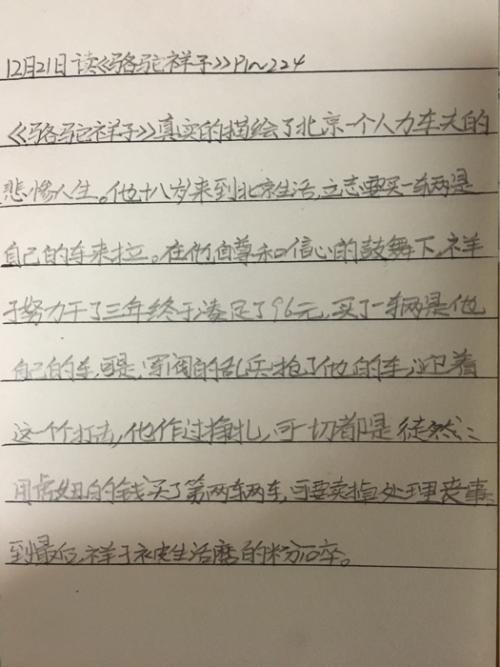 12月21日读《骆驼祥子》P1~224
《骆驼祥子》真实的描绘了北京一个人力车夫的
悲惨人生。他十八岁来到北京生活,立志要买一辆是
自己的车来拉。在他自尊和信心的鼓舞下,祥
子努力干了三年终于凑足了96元,买了一辆是他
自己的车,可是,军阀的乱兵抢了他的车,迎着
这个打击,他作过挣扎,可一切都是徒然:
用虎妞的钱买了第两车辆车,可要卖掉处理丧事
到最后,祥子被生活磨的粉碎。